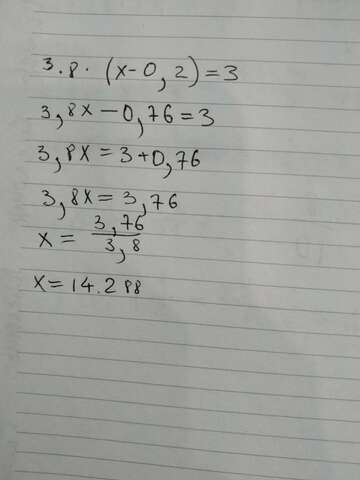 3.8.(x-0,2)=3
3,8x-0,76=3
3,8x=3+0,76
3,8x=3,76
x=3,76/3,8
x=14.288